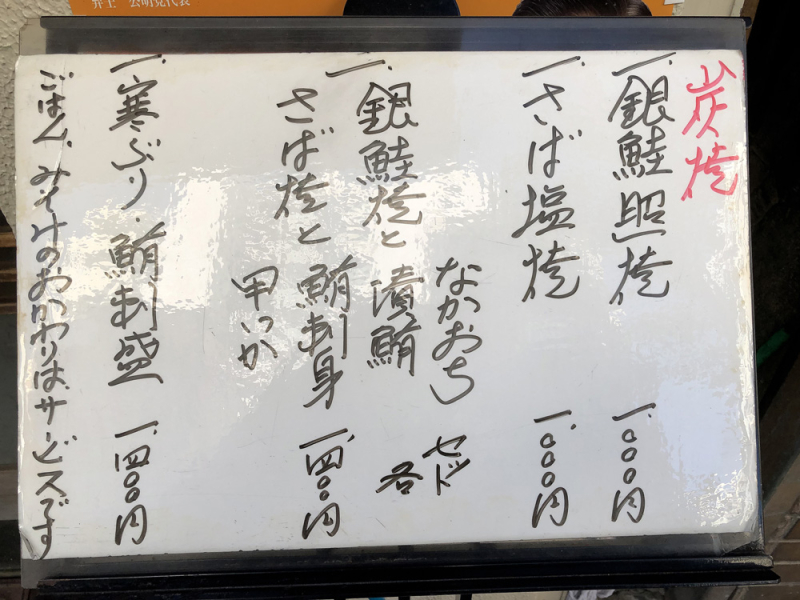 井上 公明党代表
炭焼
一、銀鮭照焼 一、〇〇〇円
一、さば塩焼 一、〇〇〇円
なかおち セット
一、銀鮭焼と 漬鮪 各
さば焼と 鮪刺身 一、四〇〇円
甲いか
一、寒ぶり・鮪刺盛 一、四〇〇円
ごはん、みそ汁のおかわりはサービスです